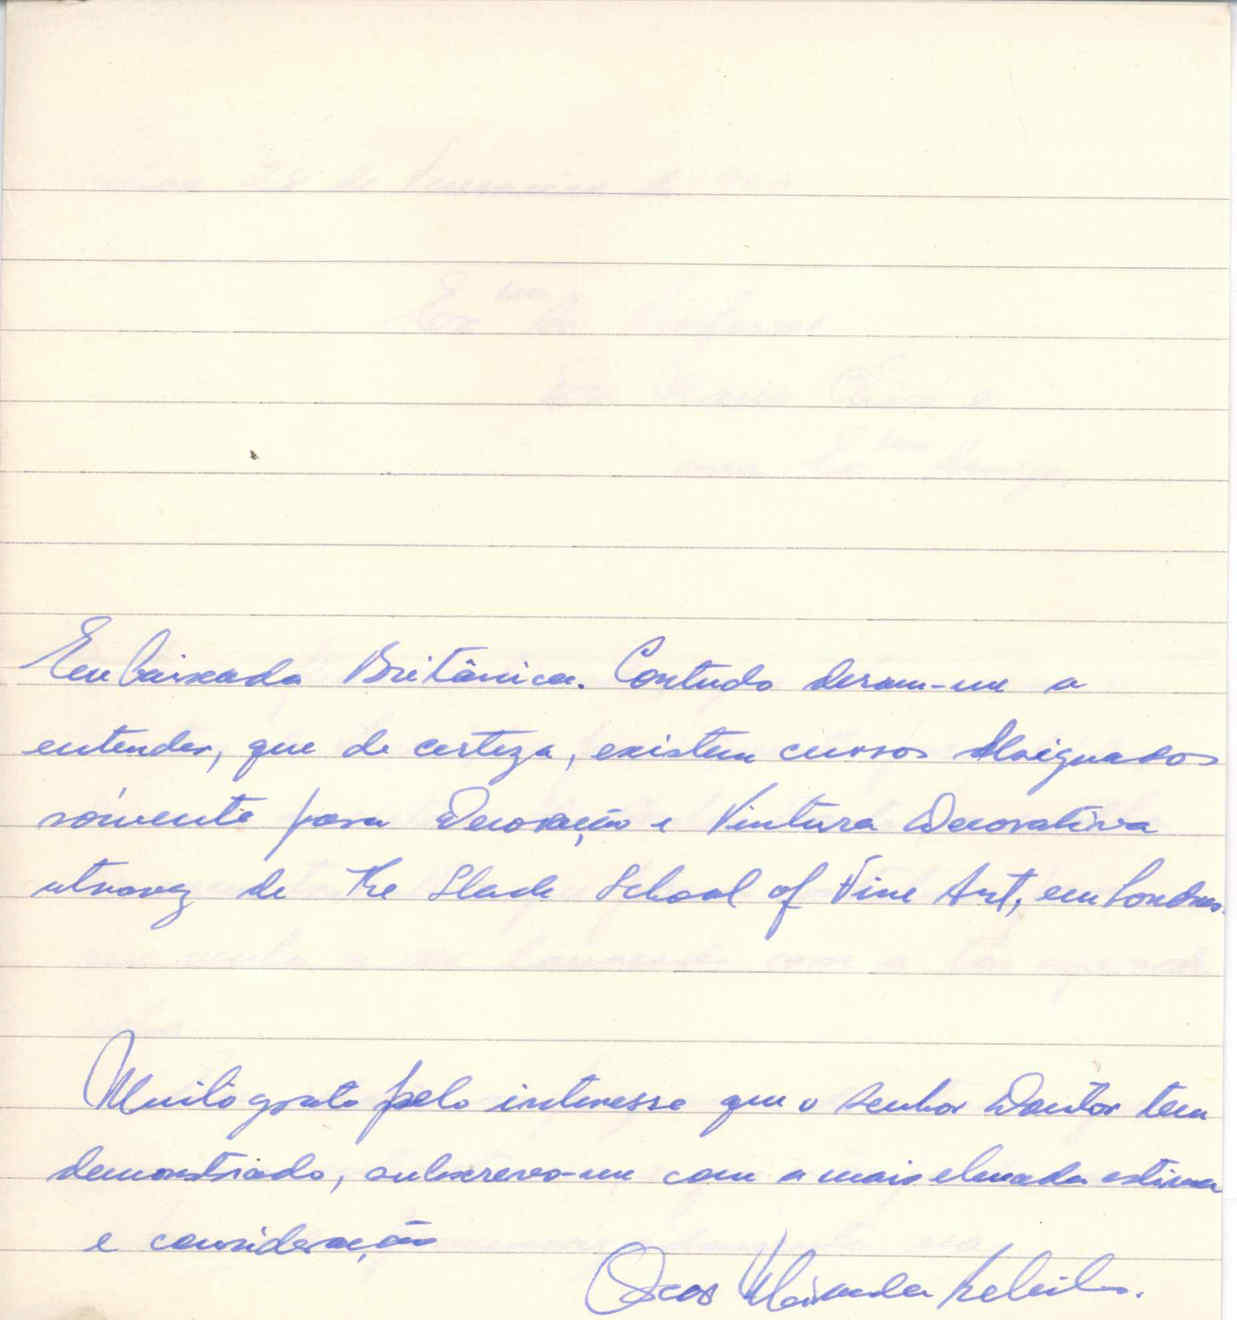 Embaixada Britânica. Contudo deram-me a
entender, que de certeza, existem cursos designados
sómente para Decoração e Pintura Decorativa
atravez de The Slade School of Fine Art, em Londres.
Muito grato pelo interesse que o senhor Doutor tem
demonstrado, subscrevo-me com a mais elevada estima
e consideração
Miranda